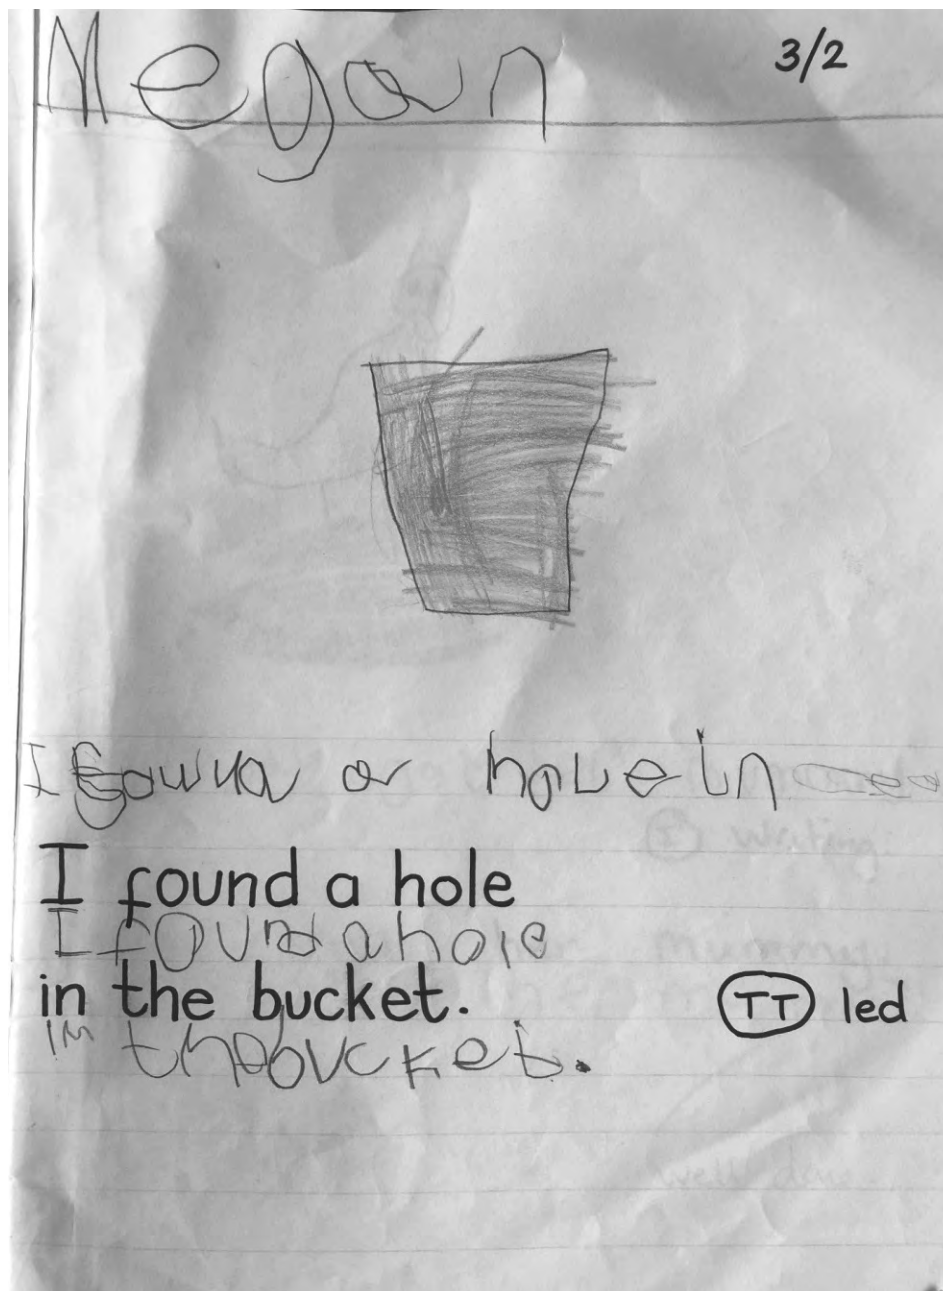 Megan 3/2
I or hole in
I found a hole
I found a hole
in the bucket. TT led
in the bucket.